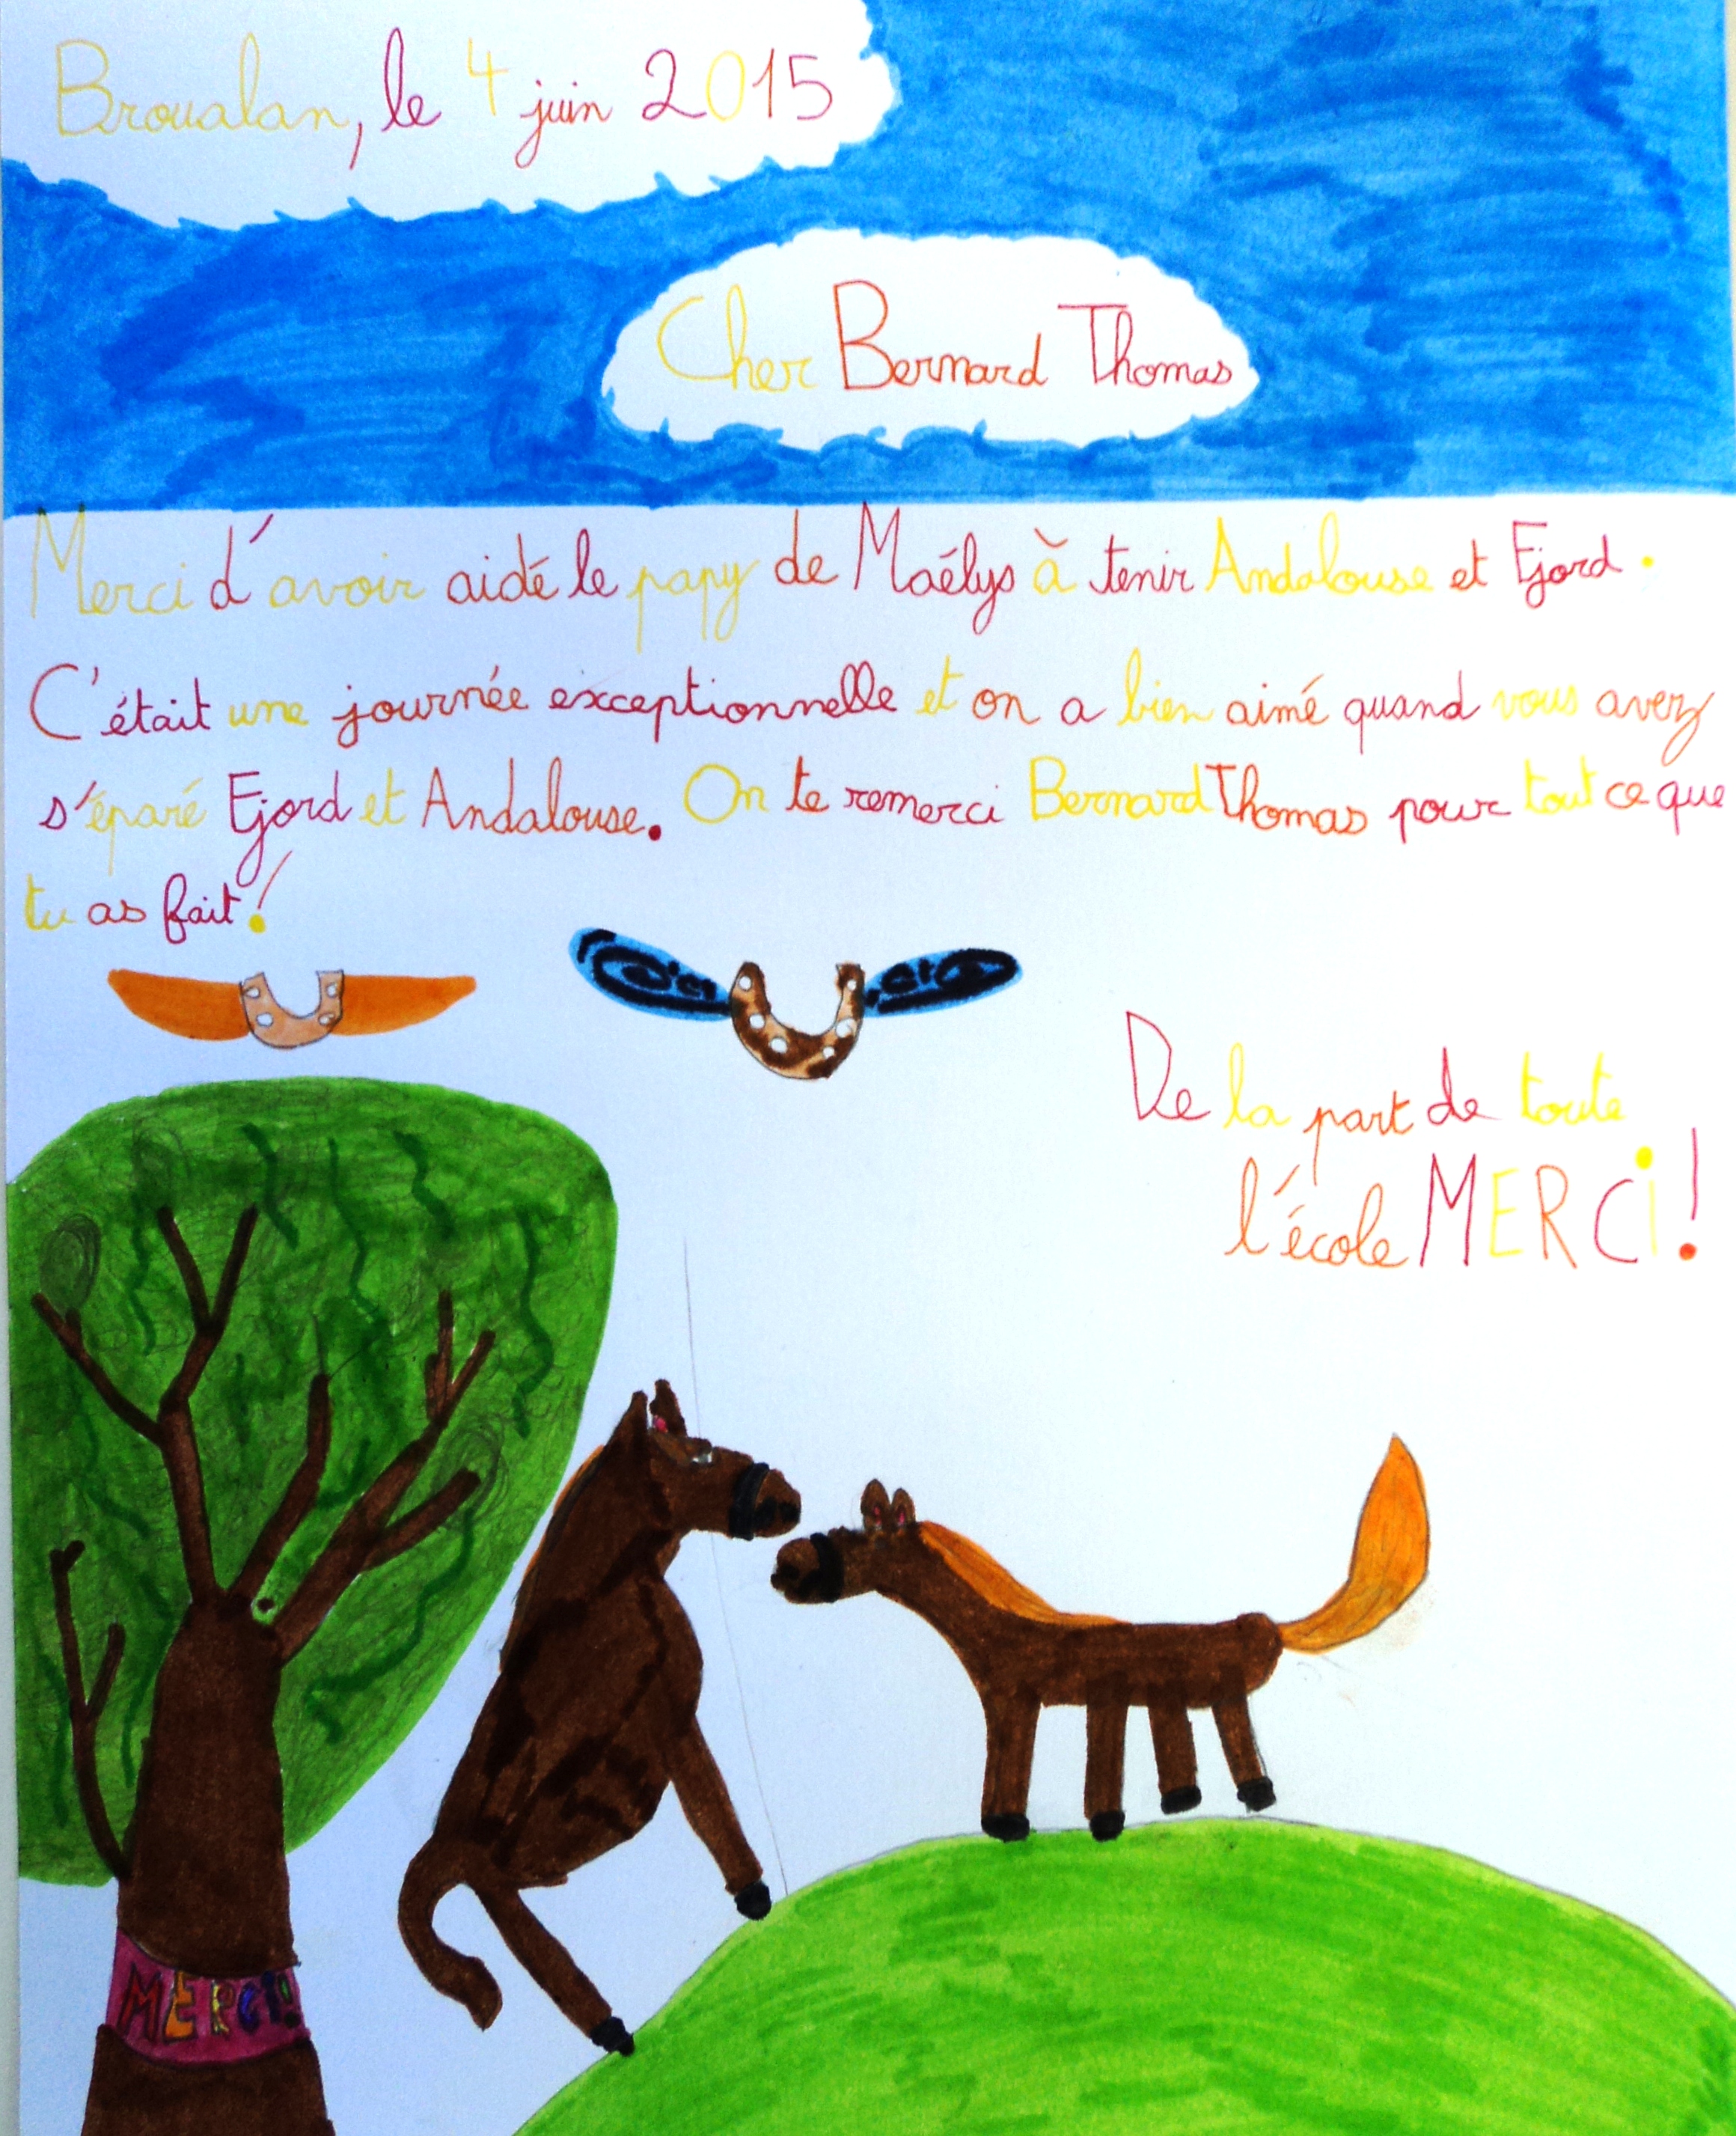 Broualan, le 4 juin 2015
Cher Bernard Thomas
Merci d'avoir aidé le papy de Maélys à tenir Andalouse et Fjord.
C'était une journée exceptionnelle et on a bien aimé quand vous avez
s'éparé Fjord et Andalouse. On te remerci Bernard Thomas pour tout ce que
tu as fait !
De la part de toute
l'école MERCi !
MERCI!